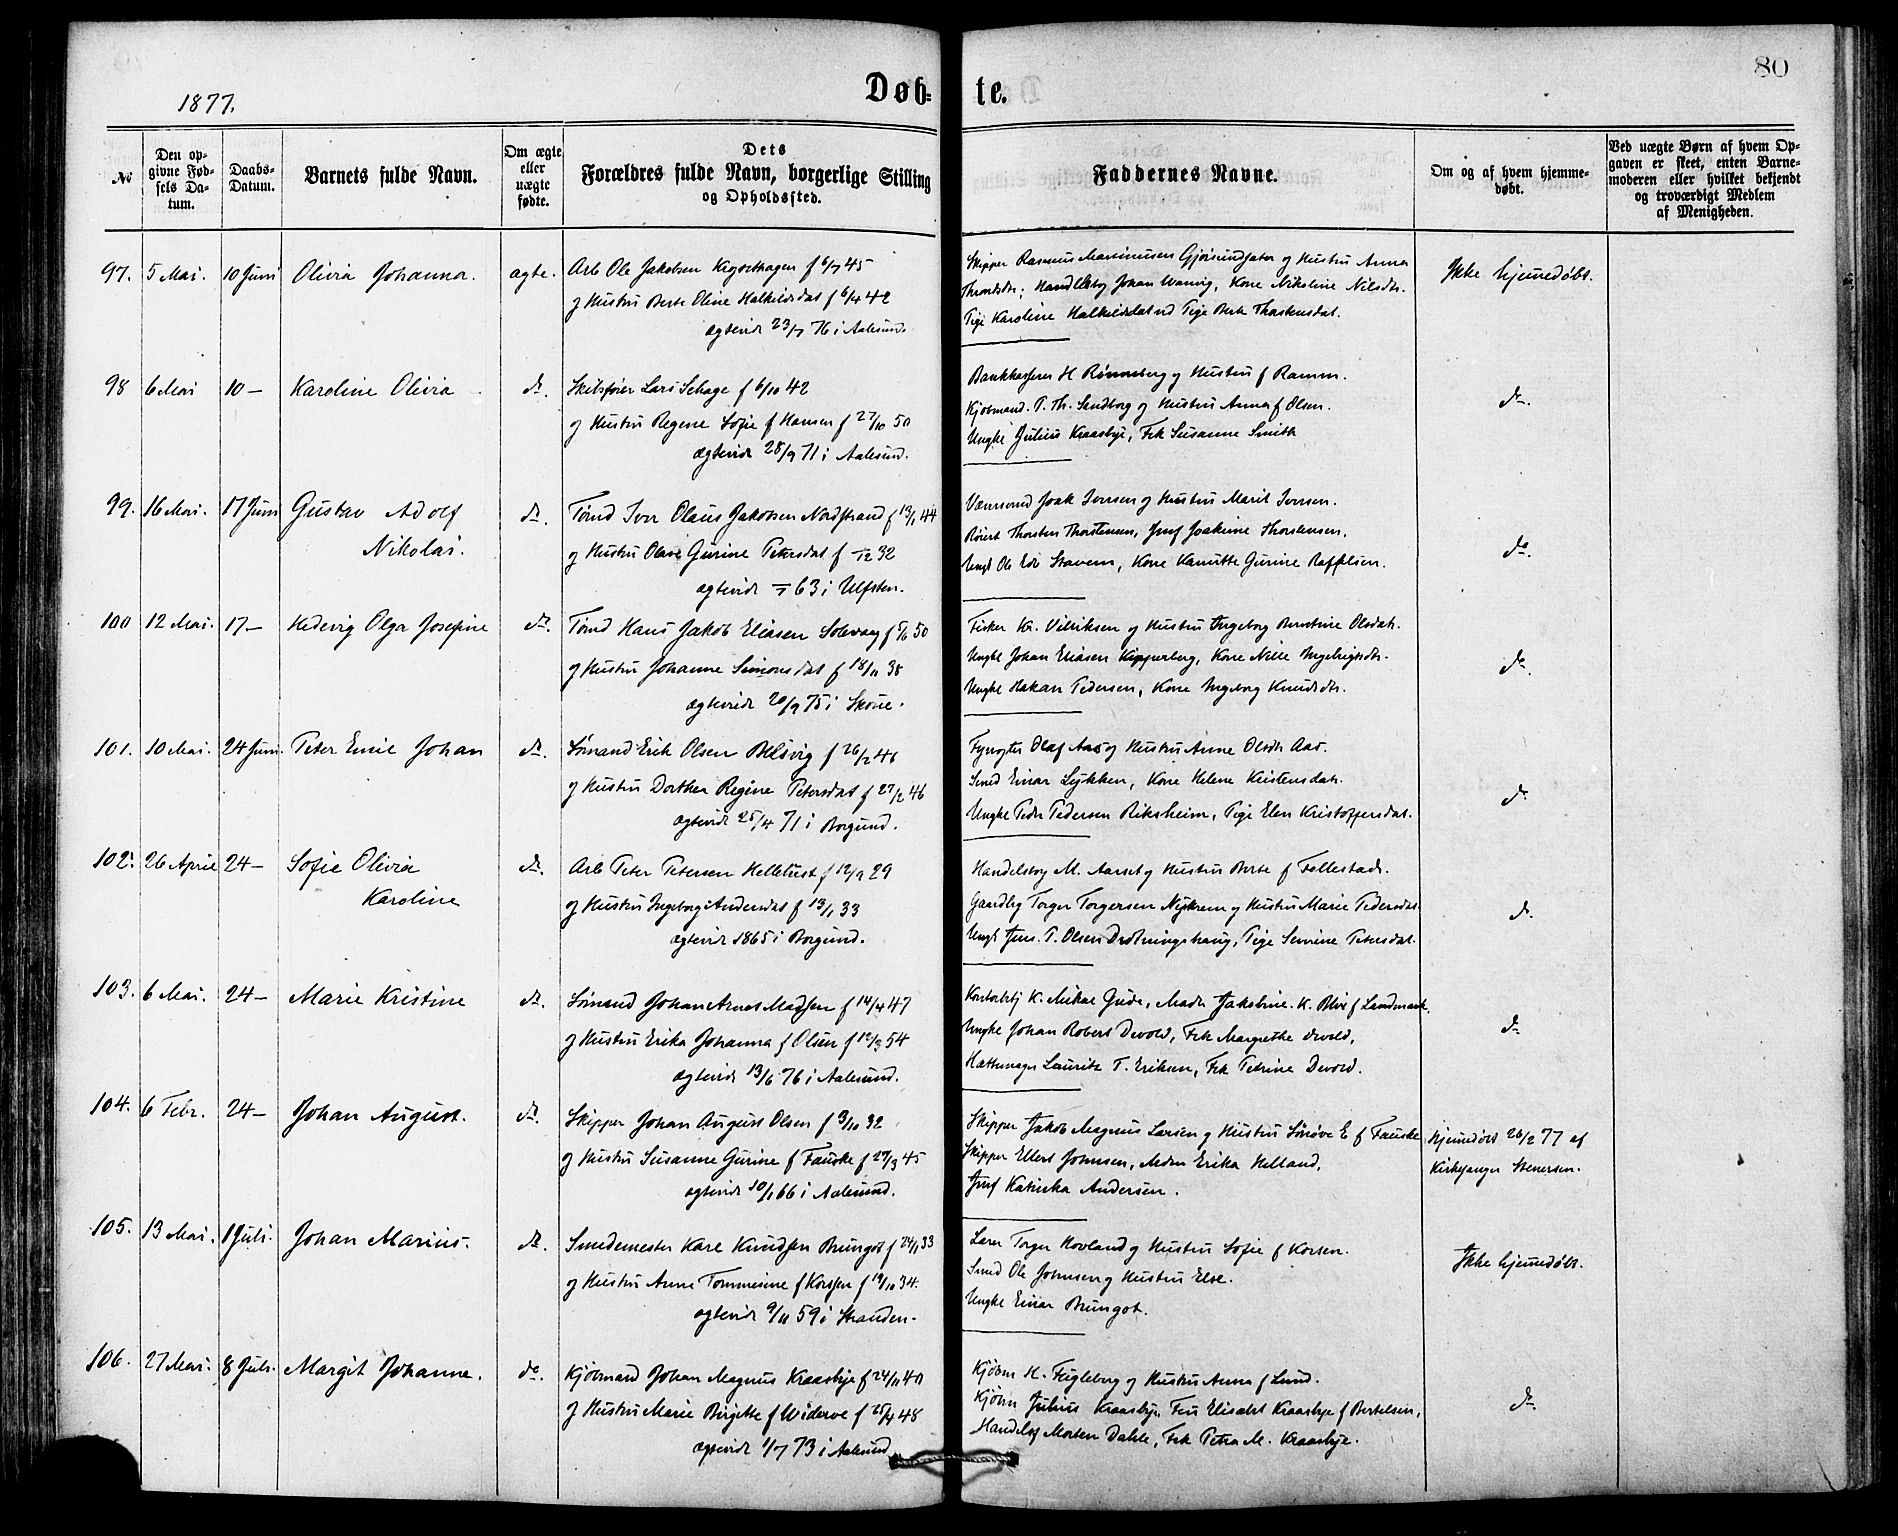 80
1877.
Døb-te.
№
Den op-
givne Fød-
sels Da-
tum.
Daabs-
Datum.
Barnets fulde Navn.
Om ægte
eller
uægte
fødte.
Dets
Forældres fulde Navn, borgerlige Stilling
og Opholdssted.
Faddernes Navne.
Om og af hvem hjemme-
døbt.
Ved uægte Børn af hvem Op-
gaven er skeet, enten Barne-
moderen eller hvilket bekjendt
og troværdigt Medlem
af Menigheden.
97. 5 Mai. 10 Juni Olivia Johanna. ægte. Arb Ole Jakobsen f 6/7 45
og Hustru Berte Oline Halkildsdat f 6/4 42
ægtevide 23/7 76 i Aalesund.
Skipper Rasmus Martinusen og Hustru Anna
Johan Kone Nikoline Nilsdtr.
Pige Karoline Halkildsdat Pige Berte Thorstensdat.
Ikke hjemmedøbt.
98 6 Mai 10 — Karoline Olivia do. Skibsfører Lars Schage f 6/10 42
og Hustru Regene Sofie f Hansen f 27/10 50
ægtevide 28/9 71 i Aalesund.
H Rønneberg og Hustru f Ramm.
Kjøbmand. P. Th. Sandborg og Hustru Anna f Olsen.
Ungke Julius Kraasbye, Frk Susanne Smith
do.
99. 16 Mai. 17 Juni Gustav Adolf
Nikolai.
do. Tømd Iver Olaus Jakobsen Nordstrand f 13/1 44
og Hustru Gurine Petersdat f 32
ægtevide 63 i Ulfsten.
Joak Iversen og Hustru Marit Iversen.
Thorsten Thorstensen, Jmf Joakime Thorstensen.
Ungk Ole Kone Gurine
do.
100 12 Mai. 17 — Hedevig Olga Josefine do. Tømd Hans Jakob Eliasen f 50
og Hustru Johanne Simonsdat f 18/11 38
ægtevide 20/9 75 i
Fisker Kr. og Hustru Ingeborg Olsdatr.
Ungke Johan Eliasen Kipperberg, Kone Nille
Ungke Hakan Pedersen, Kone Ingeborg Knudsdtr.
do.
101. 10 Mai. 24 Juni. Peter Emil Johan do. Sømand Erik Olsen f 26/2 46
og Hustru Dorthea Regine Petersdat f 27/2 46
ægtevide 25/4 71 i Borgund.
Fyrvogter Olaf Aas og Hustru Anne Olsdtr Aas.
Smed Einar Lykken, Kone Helene Kristensdatr.
Ungke Pedr Pedersen Riksheim, Pige Elen Kristoffersdat.
do
102. 26 April 24 — Sofie Olivia
Karoline
do. Arb Peter Petersen f 12/9 29
og Hustru Ingeborg Andersdat f 13/1 33
ægtevide 1865 i Borgund.
Handelsbog M. Aarset og Hustru Berte f Follestad.
Gaardbg Torger Torgersen og Hustru Marie Pedersdat.
Ungk Jens. P. Olsen Dronningshaug, Pige Severine Petersdat.
do.
103. 6 Mai. 24 — Marie Kristine do. Sømand Johan Arnet Madsen f 14/4 47
og Hustru Erika Johanna f Olsen f 12/3 54
ægtevide 13/6 76 i Aalesund.
K. Mikal Gude, Madm Jakobine. K. f Landmark.
Ungke Johan Robert Devold, Frk Margrethe Devold,
Hattemager Lauritz T. Eriksen, Frk Petrine Devold.
do
104. 6 Febr. 24 — Johan August. do. Skipper Johan August Olsen f 3/10 32
og Hustru Susanne Gurine f Fauske f 29/3 45
ægtevide 10/1 66 i Aalesund.
Skipper Jakob Magnus Larsen og Hustru E f Fauske
Skipper Ellert Johnsen, Madm Erika Helland,
Jmf Katinka Andersen.
hjemmedøbt 26/2 77 af
Kirkesanger Stenersen.
105. 13 Mai. 1 Juli. Johan Marius. do. Smedemester Kare Knudsen Brungot f 24/1 33
og Hustru Anne Tommesine f Korssen f 19/10 34.
ægtevide 9/11 59 i Stranden.
Lærer Torger Hovland og Hustru Sofie f Korsen.
Smed Ole Johnsen og Hustru Else.
Ungke Einar Brungot.
Ikke hjemmedøbt.
106. 27 Mai. 8 Juli. Margit Johanne. do. Kjøbmand Johan Magnus Kraasbye f 24/11 40
og Hustru Marie Birgitte f Widerøe f 25/4 48
ægtevide 1/7 73 i Aalesund
Kjøbm H. Fugleberg og Hustru Anna f Lund.
Kjøbm Julius Kraasbye, Fru Elisabet Kraasbye f Bertelsen,
Morten Dahle, Frk Petra M. Kraasbye.
do.